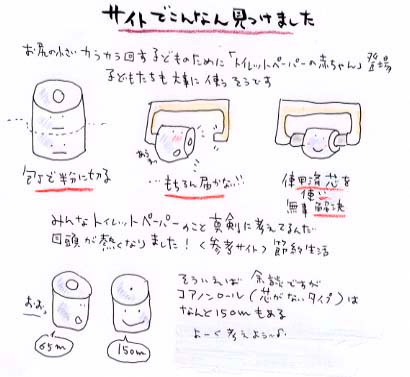 サイトでこんなん見つけました
お尻の小さいカラカラ回す子どものために「トイレットペーパーの赤ちゃん」登場
子どもたちも大事に使うそうです
包丁で半分に切る
あらま
…もちろん届かない!!
使用済芯を
使い
無事解決
みんなトイレットペーパーのこと真剣に考えてるんだ
目頭が熱くなりました!〈参考サイト〉節約生活
おぉ
65m
150m
そういえば余談ですが
コアノンロール(芯がないタイプ)は
なんと150mもある
よーく考えよう〜♪